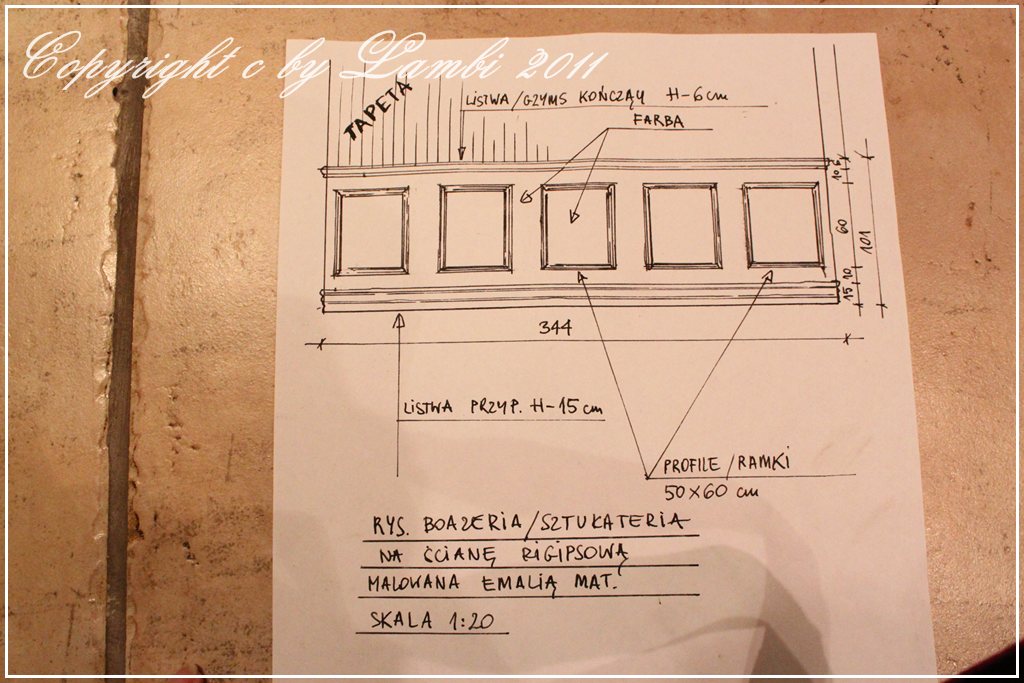 Copyright c by Lambi 2011
TAPETA
LISTWA/GZYMS KOŃCZĄY H-6cm
FARBA
10
6
60
101
10
15
344
LISTWA PRZYP. H-15cm
PROFILE/RAMKI
50x60 cm
RYS. BOAZERIA/SZTUKATERIA
NA ŚCIANĘ RIGIPSOWĄ
MALOWANA EMALIĄ MAT.
SKALA 1:20